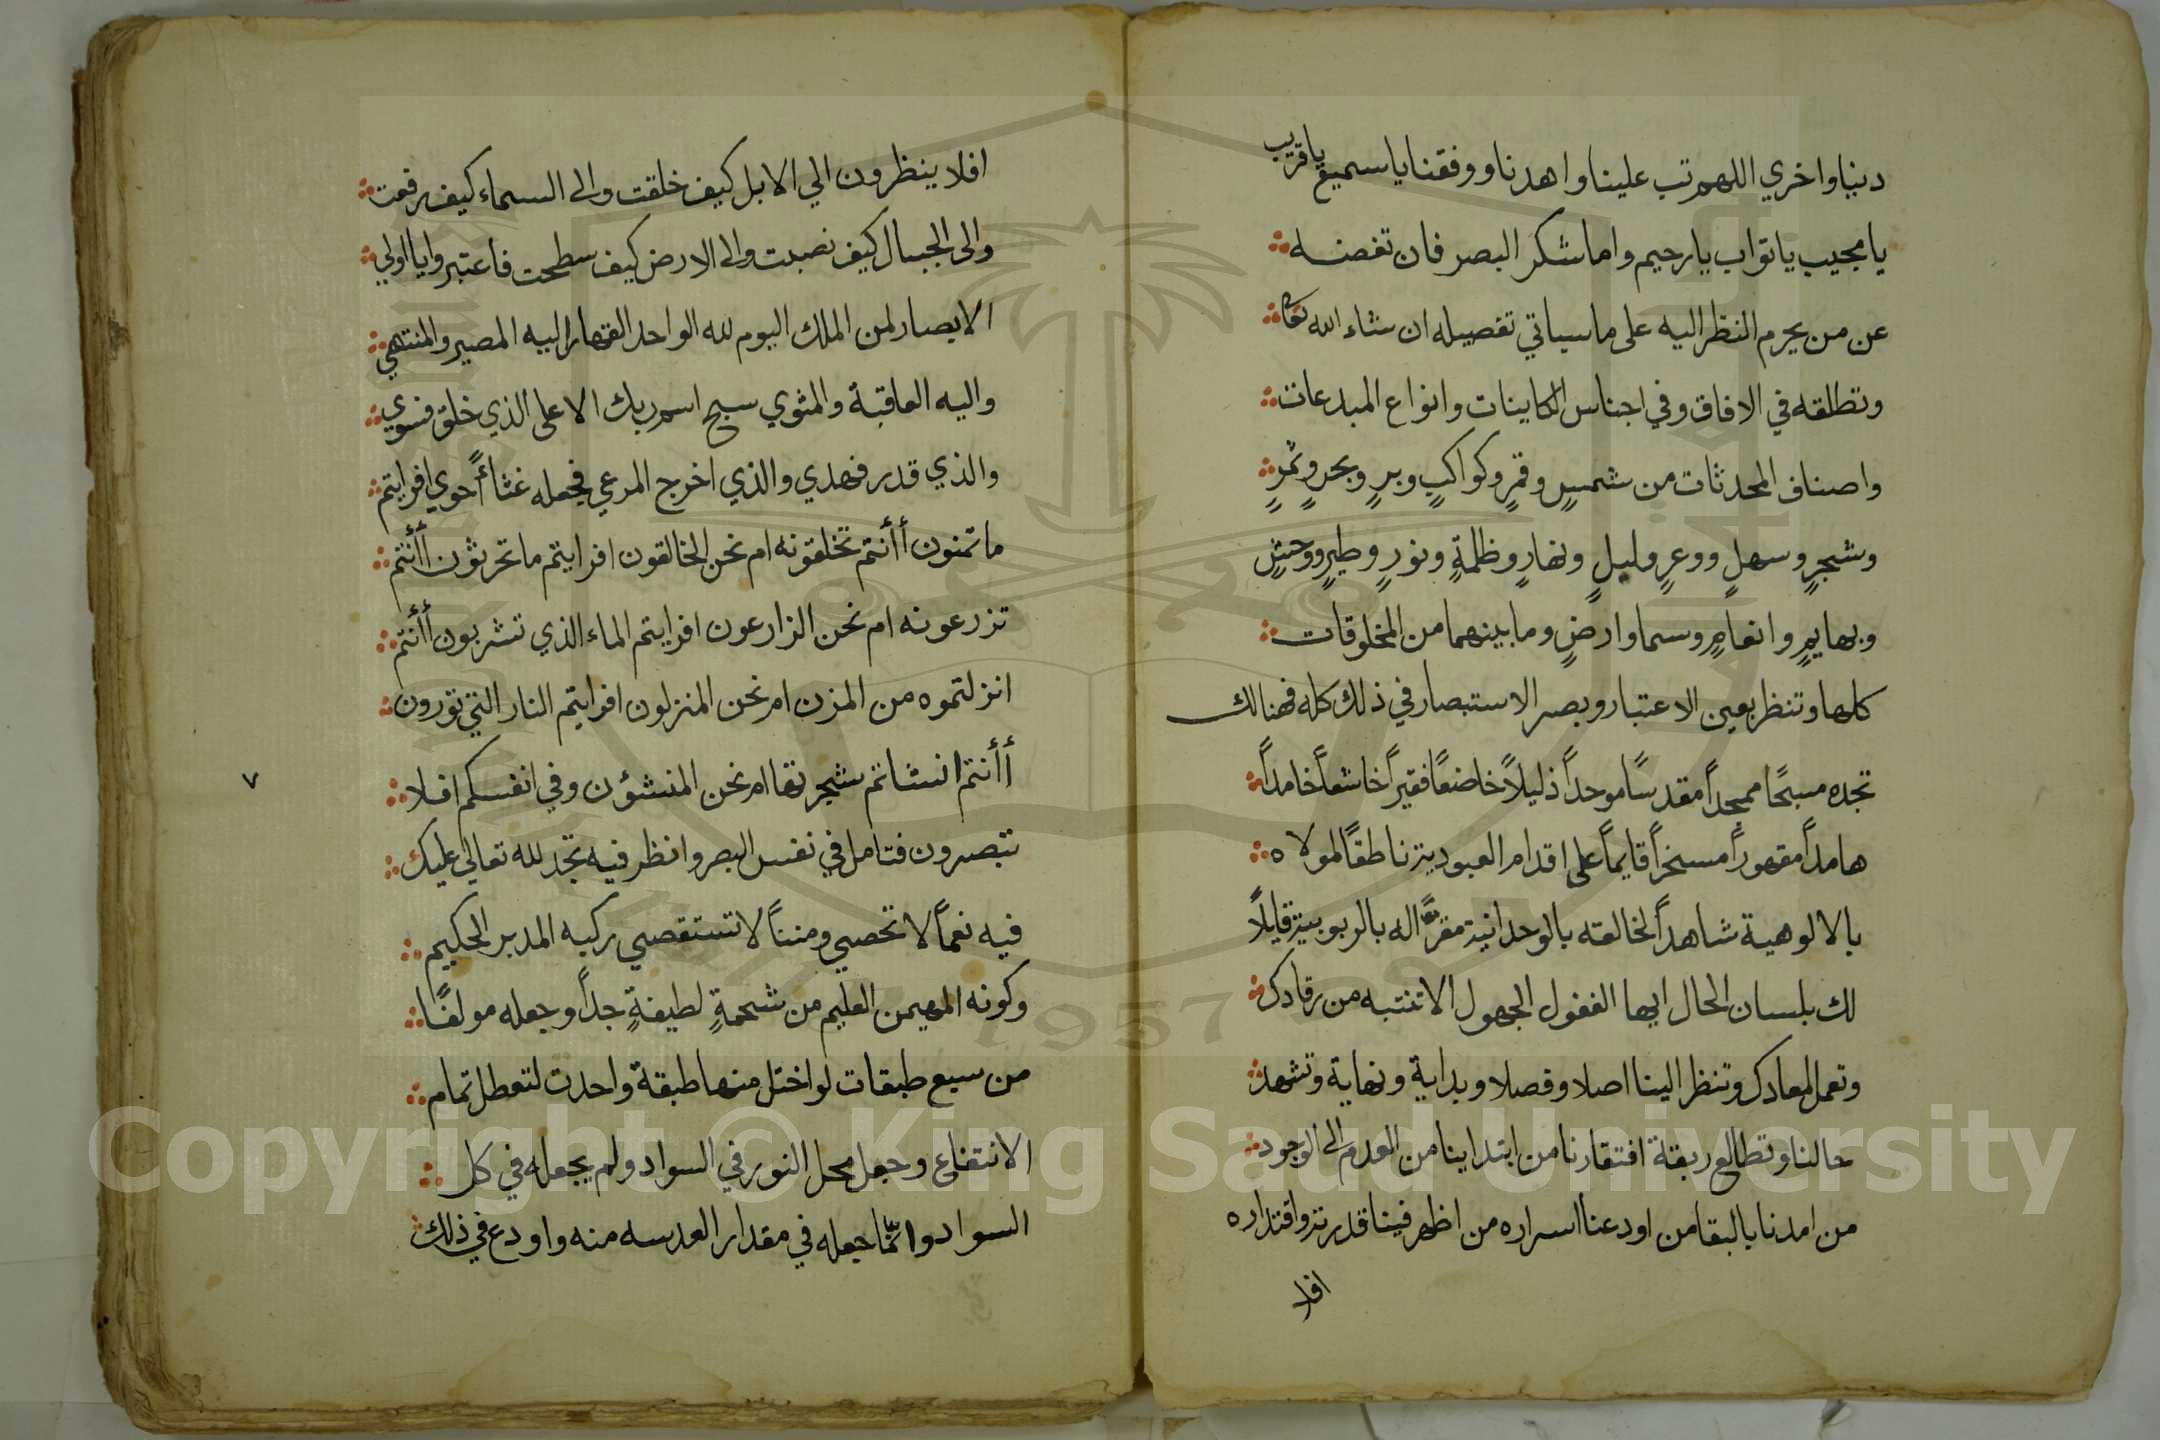 دنيا واخري اللهم تب علينا واهدنا ووفقنا يا سميع يا قريب
يا مجيب يا تواب يا رحيم واما شكر البصر فان تغضه
عن من يحرم النظر اليه على ما سياتي تفصيله ان شاء الله تعا
وتطلقه في الافاق وفي اجناس الكاينات وانواع المبدعات
واصناف المحدثات من شمسٍ وقمرٍ وكواكبٍ وبرٍ وبحرٍ وثمرٍ
وشجرٍ وسهلٍ ووعرٍ وليلٍ ونهارٍ وظلمةٍ ونورٍ وطيرٍ ووحشٍ
وبهايمٍ وانعامٍ وسما وارضٍ وما بينهما من المخلوقات
كلها وتنظر بعين الاعتبار وبصر الاستبصار في ذلك كله فهنالك
تجده مسبحًا ممجداً مقدسًا موحداً ذليلاً خاضعًا فقيراً خاشعاً خامداً
هامداً مقهوراً مسخراً قايماً على اقدام العبودية ناطقًا لمولاه
بالالوهية شاهداً لخالقه بالوحدانية مقراً له بالربوبية قايلاً
لك بلسان الحال ايها الغفول الجهول الا تنتبه من رقادك
وتعمل لمعادك وتنظر الينا اصلا وفصلا وبداية ونهاية وتشهد
حالنا وتطالع ربقة افتقارنا من ابتداينا من العدم الى الوجود
من امدنا بالبقا من اودعنا اسراره من اظهر فينا قدرته واقتداره
افلا
افلا ينظرون الي الابل كيف خلقت والى السماء كيف رفعت
والى الجبال كيف نصبت والى الارض كيف سطحت فاعتبروا يا اولي
الابصار لمن الملك اليوم لله الواحد القهار اليه المصير والمنتهي
واليه العاقبة والمثوي سبح اسم ربك الاعلى الذي خلق فسوي
والذي قدر فهدي والذي اخرج المرعي فجعله غثاءً احوي افرايتم
ما تمنون أأنتم تخلقونه ام نحن الخالقون افرايتم ما تحرثون أأنتم
تزرعونه ام نحن الزارعون افرايتم الماء الذي تشربون أأنتم
انزلتموه من المزن ام نحن المنزلون افرايتم النار التي تورون
أأنتم انشاتم شجرتها ام نحن المنشؤن وفي انفسكم افلا
٧
تبصرون فتامل في نفس البصر وانظر فيه تجد لله تعالي عليك
فيه نعماً لا تحصي ومننًا لا تستقصي ركبه المدبر الحكيم
وكونه المهيمن العليم من شحمةٍ لطيفةٍ جداً وجعله مولفًا
من سبع طبقات لو اختل منها طبقة واحدت لتعطل تمام
الانتفاع وجعل محل النور في السواد ولم يجعله في كل
السواد وانمّا جعله في مقدار العدسه منه واودع في ذلك
Copyright © King Saud University
1957